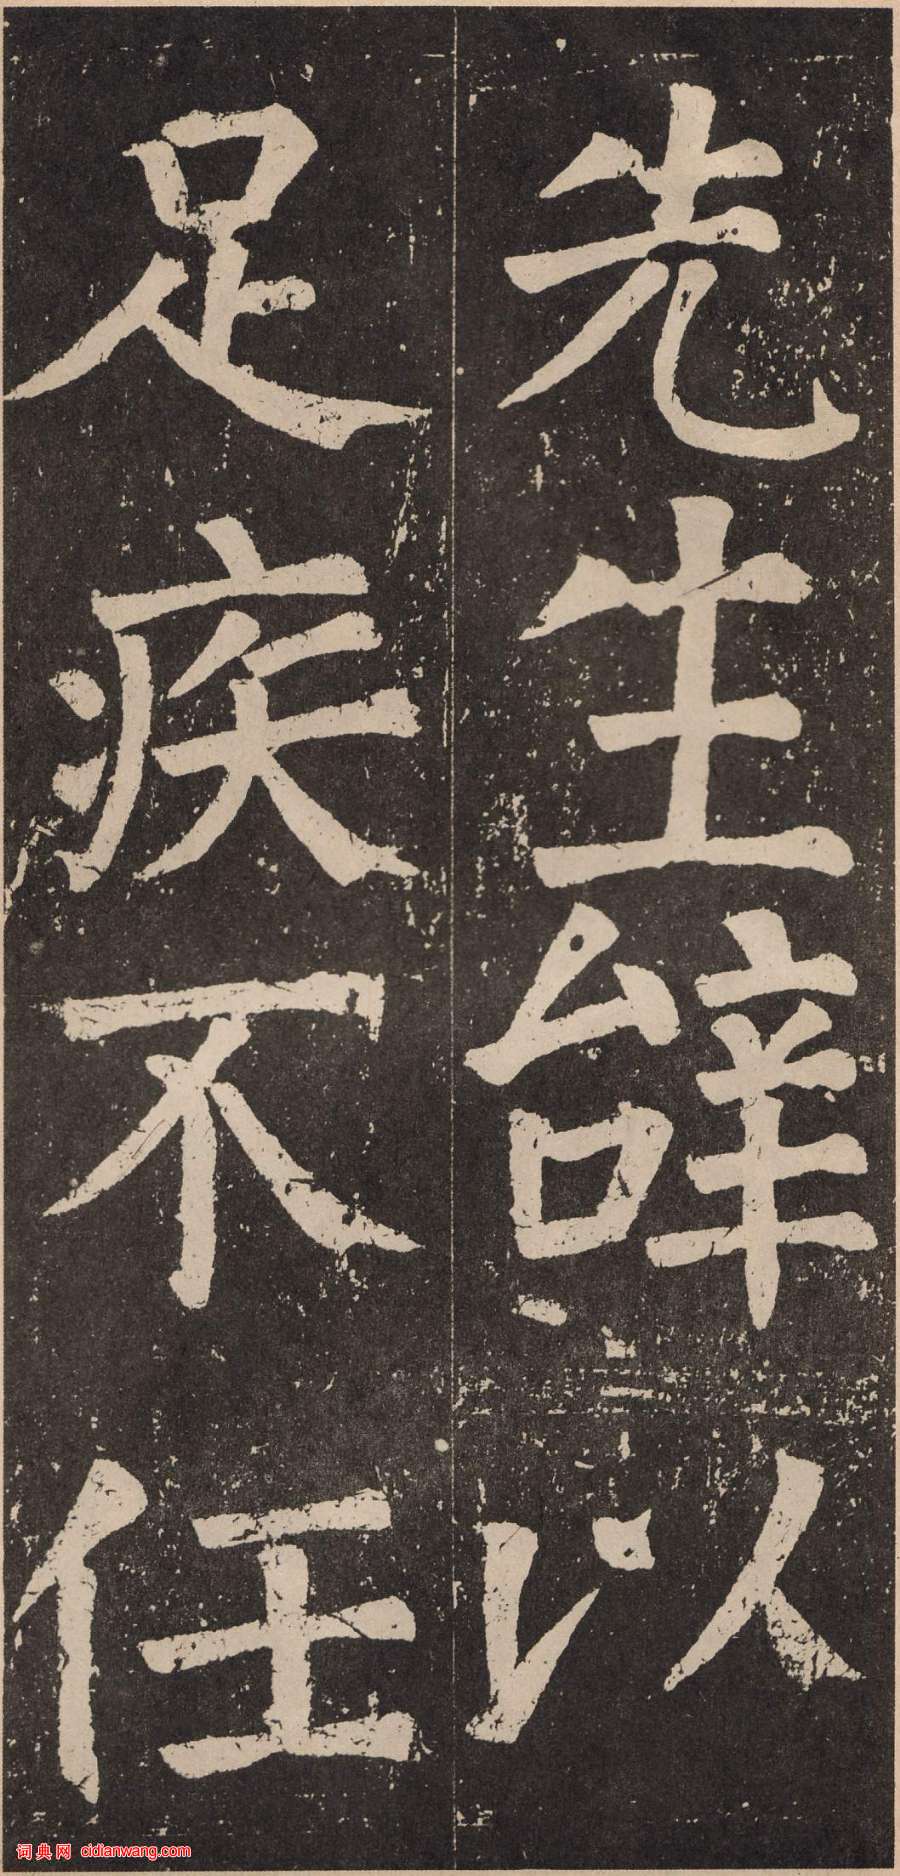 先生辝以
足疾不任
词典网 cidianwang.com